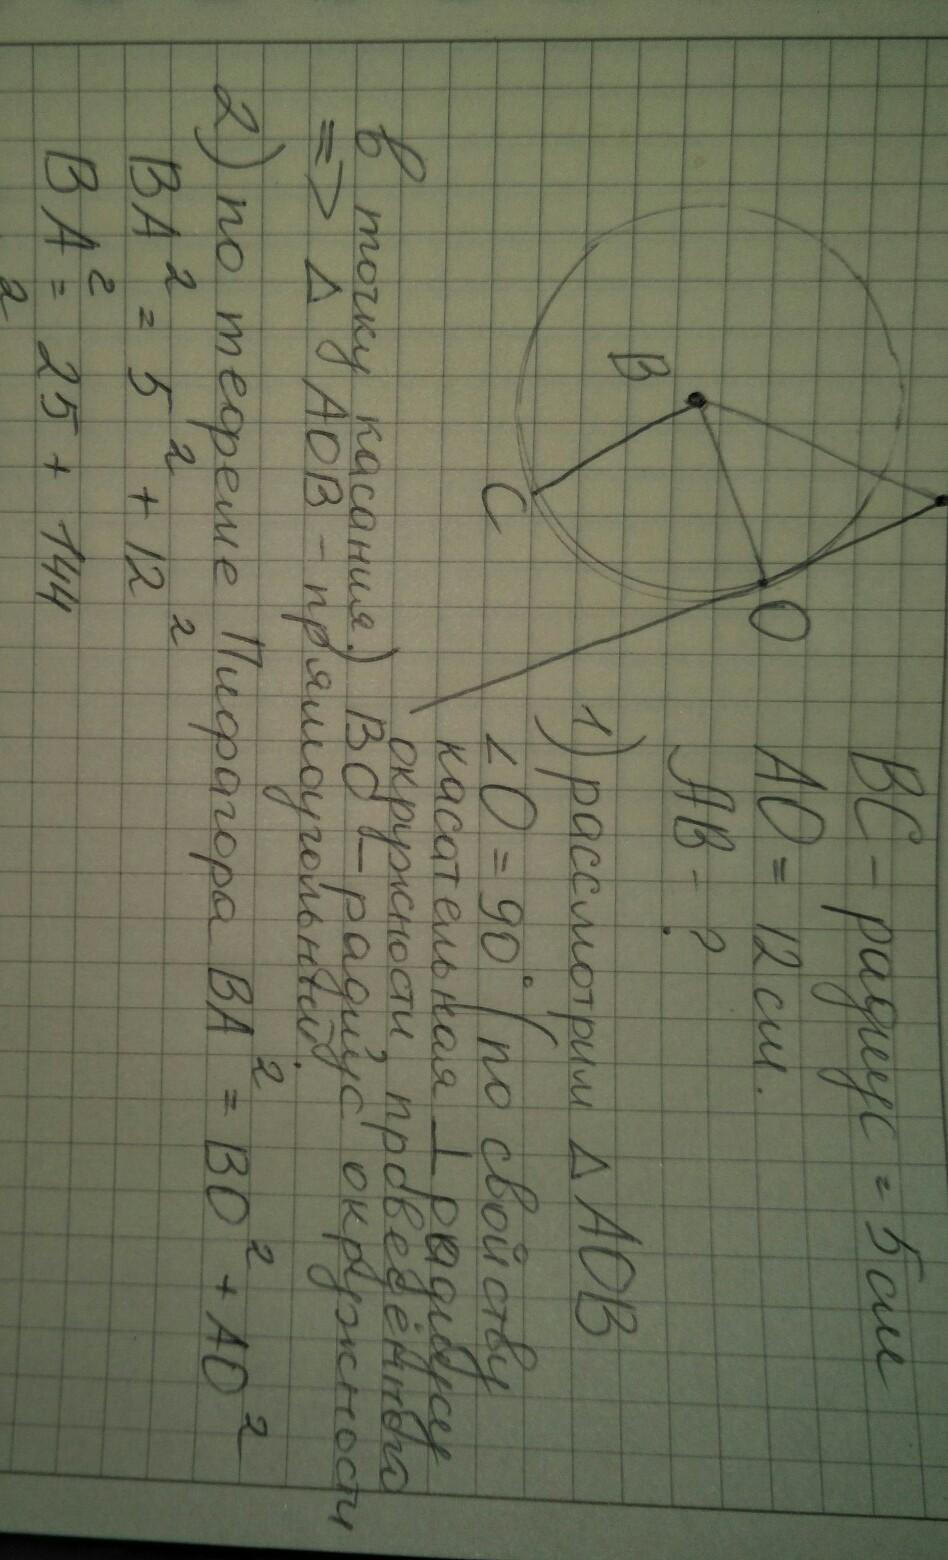 BC - радиус = 5 см
AO = 12 см.
AB - ?
O
B
C
1) рассмотрим Δ AOB
∠O = 90° (по свойству
касательная ⊥ радиусу
окружности проведённого
в точку касания.) BO - радиус окружности
=> Δ AOB - прямоугольный.
2) по теореме Пифагора BA² = BO² + AO²
BA² = 5² + 12²
BA² = 25 + 144
2